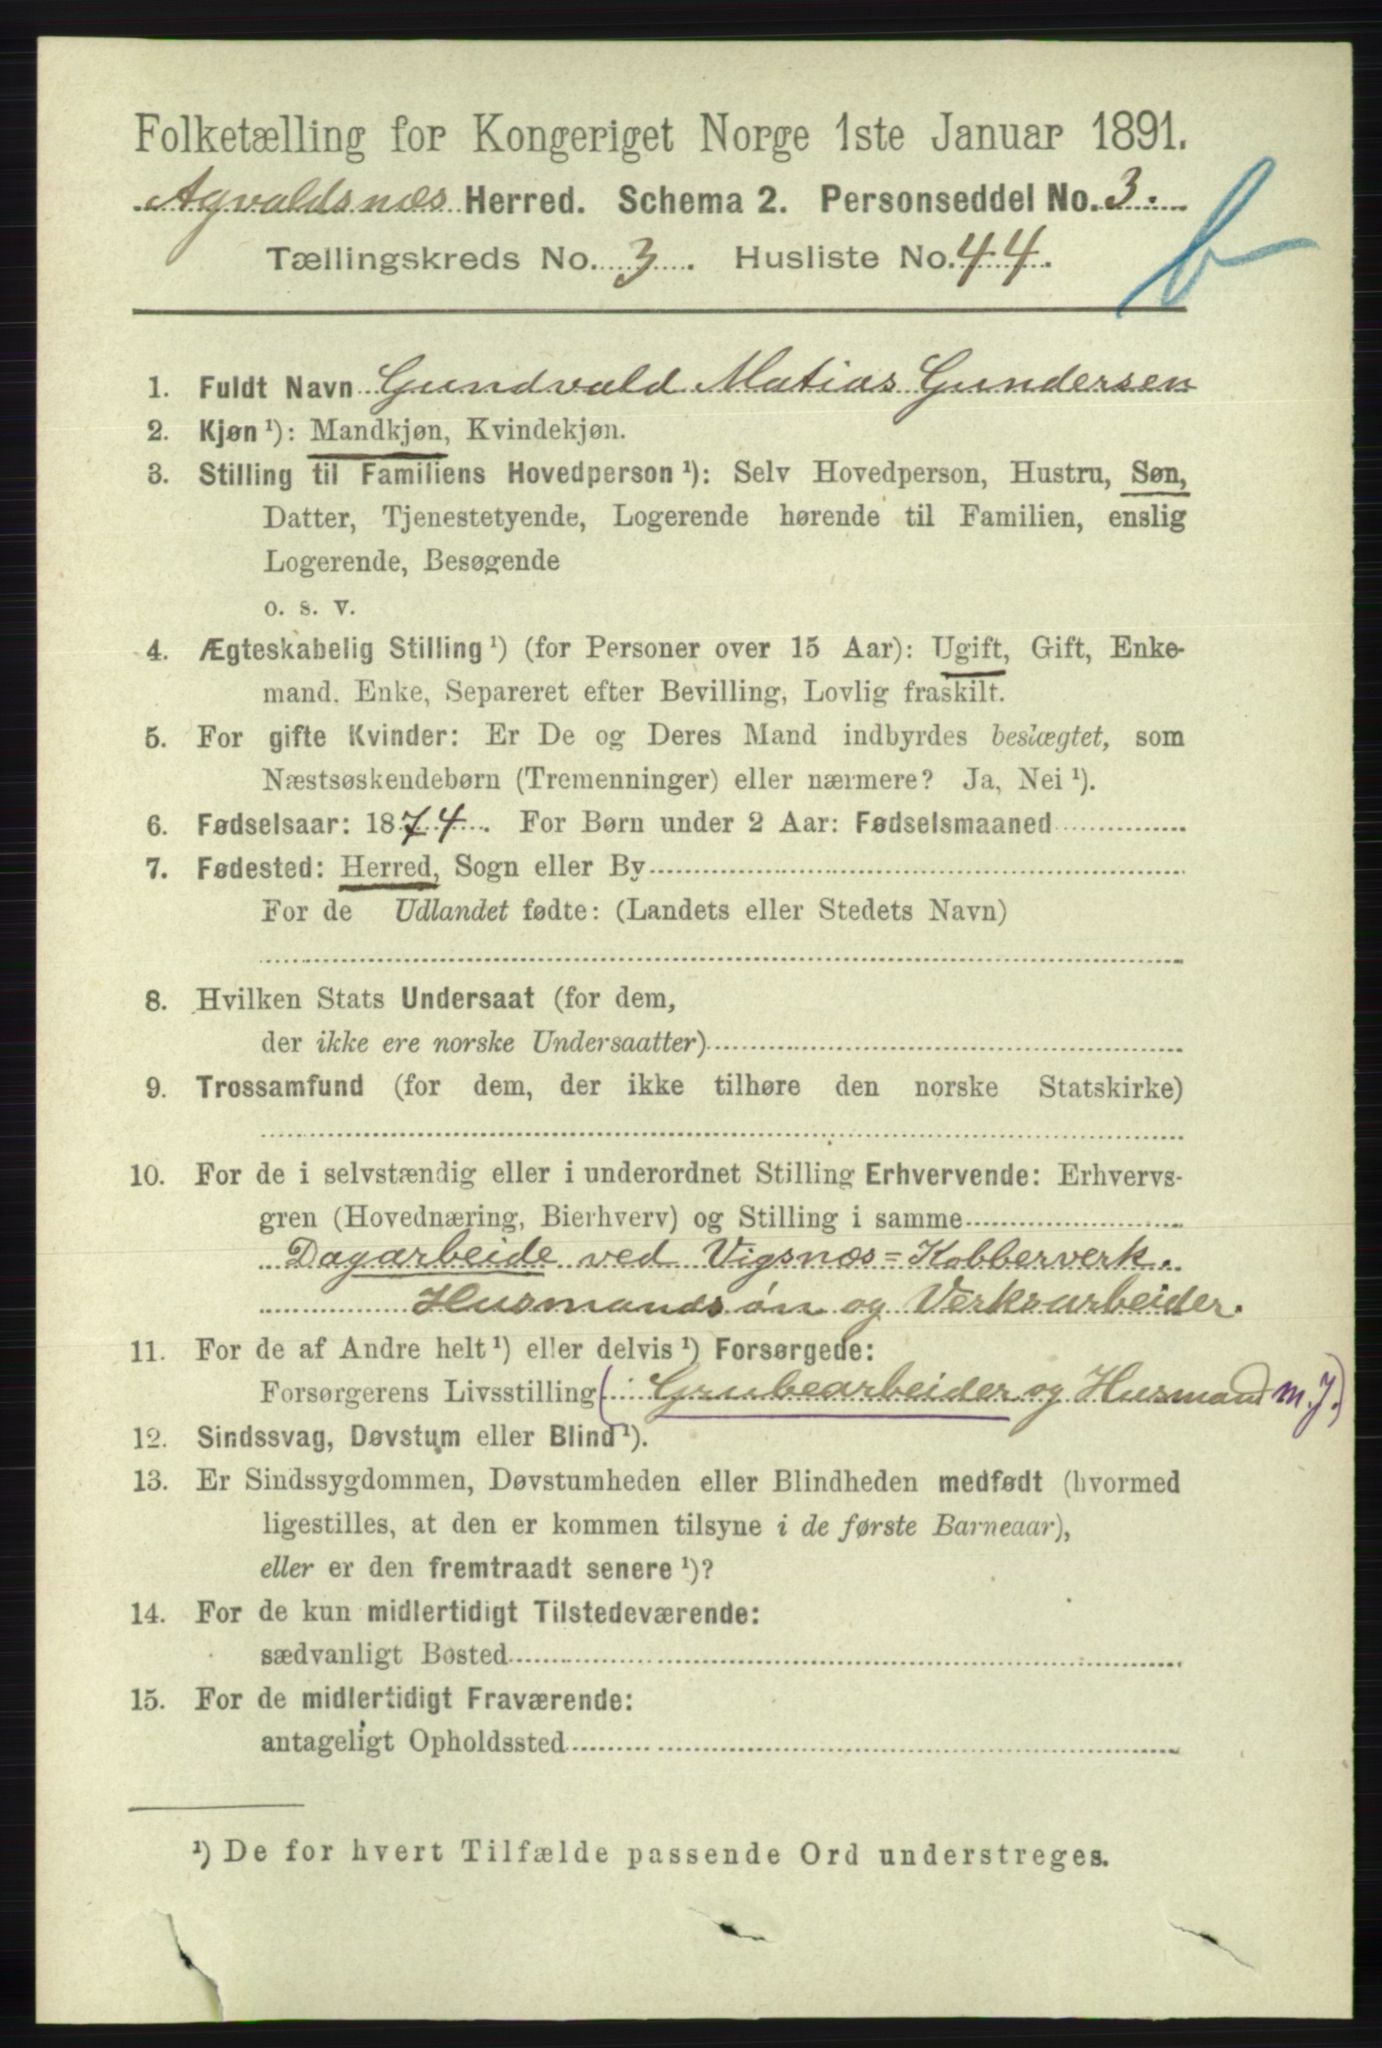 Folketælling for Kongeriget Norge 1ste Januar 1891.
Agvaldsnæs Herred. Schema 2. Personseddel No. 3.
Tællingskreds No. 3. Husliste No. 44.
b
1. Fuldt Navn Gundvald Matias Gundersen
2. Kjøn ¹): Mandkjøn, Kvindekjøn.
3. Stilling til Familiens Hovedperson ¹): Selv Hovedperson, Hustru, Søn,
Datter, Tjenestetyende, Logerende hørende til Familien, enslig
Logerende, Besøgende
o. s. v.
4. Ægteskabelig Stilling ¹) (for Personer over 15 Aar): Ugift, Gift, Enke-
mand, Enke, Separeret efter Bevilling, Lovlig fraskilt.
5. For gifte Kvinder: Er De og Deres Mand indbyrdes beslægtet, som
Næstsøskendebørn (Tremenninger) eller nærmere? Ja, Nei ¹).
6. Fødselsaar: 1874. For Børn under 2 Aar: Fødselsmaaned
7. Fødested: Herred, Sogn eller By
For de Udlandet fødte: (Landets eller Stedets Navn)
8. Hvilken Stats Undersaat (for dem,
der ikke ere norske Undersaatter)
9. Trossamfund (for dem, der ikke tilhøre den norske Statskirke)
10. For de i selvstændig eller i underordnet Stilling Erhvervende: Erhvervs-
gren (Hovednæring, Bierhverv) og Stilling i samme
Dagarbeide ved Vigsnæs=Kobberverk.
Husmandsøn og Verksarbeider.
11. For de af Andre helt ¹) eller delvis ¹) Forsørgede:
Forsørgerens Livsstilling (Grubearbeider og Husmand m. J.)
12. Sindssvag, Døvstum eller Blind ¹).
13. Er Sindssygdommen, Døvstumheden eller Blindheden medfødt (hvormed
ligestilles, at den er kommen tilsyne i de første Barneaar),
eller er den fremtraadt senere ¹)?
14. For de kun midlertidigt Tilstedeværende:
sædvanligt Bosted
15. For de midlertidigt Fraværende:
antageligt Opholdssted
¹) De for hvert Tilfælde passende Ord understreges.